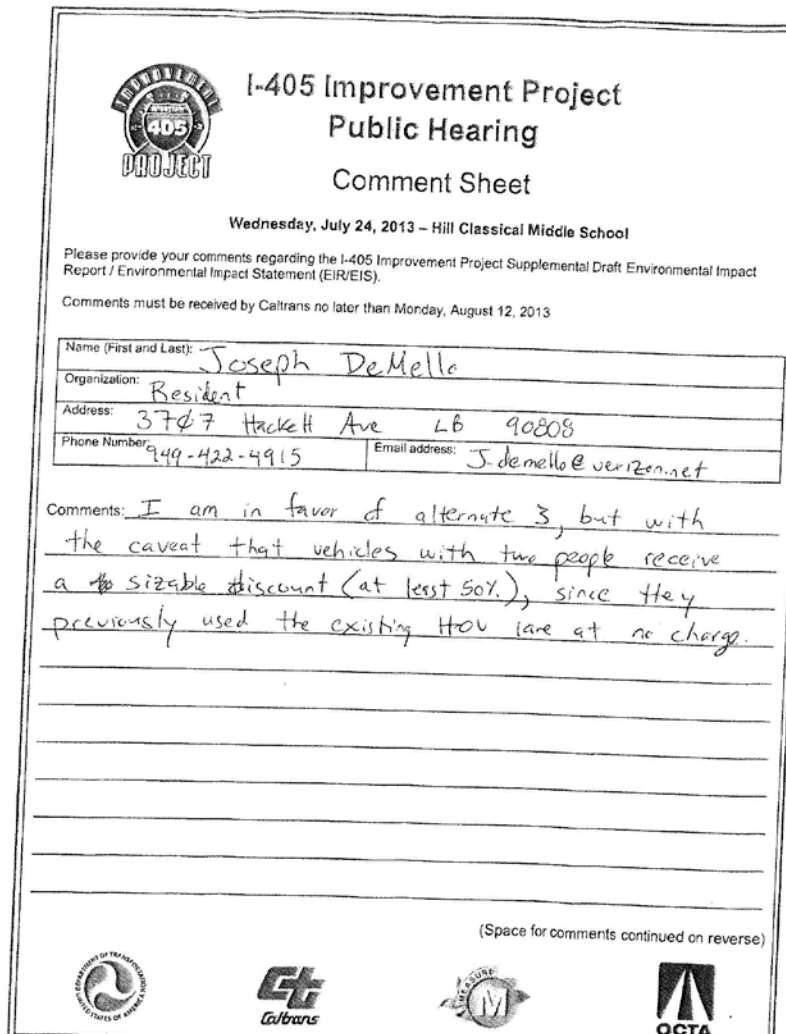 IMPROVEMENT
405
PROJECT
I-405 Improvement Project
Public Hearing
Comment Sheet
Wednesday, July 24, 2013 – Hill Classical Middle School
Please provide your comments regarding the I-405 Improvement Project Supplemental Draft Environmental Impact
Report / Environmental Impact Statement (EIR/EIS).
Comments must be received by Caltrans no later than Monday, August 12, 2013
Name (First and Last): Joseph DeMello
Organization: Resident
Address: 3707 Hackett Ave LB 90808
Phone Number: 949-422-4915 Email address: J-demello@verizon.net
Comments: I am in favor of alternate 3, but with
the caveat that vehicles with two people receive
a sizable discount (at least 50%), since they
previously used the existing HOV lane at no charge.
(Space for comments continued on reverse)
DEPARTMENT OF TRANSPORTATION
UNITED STATES OF AMERICA
Caltrans
MEASURE
M
OCTA